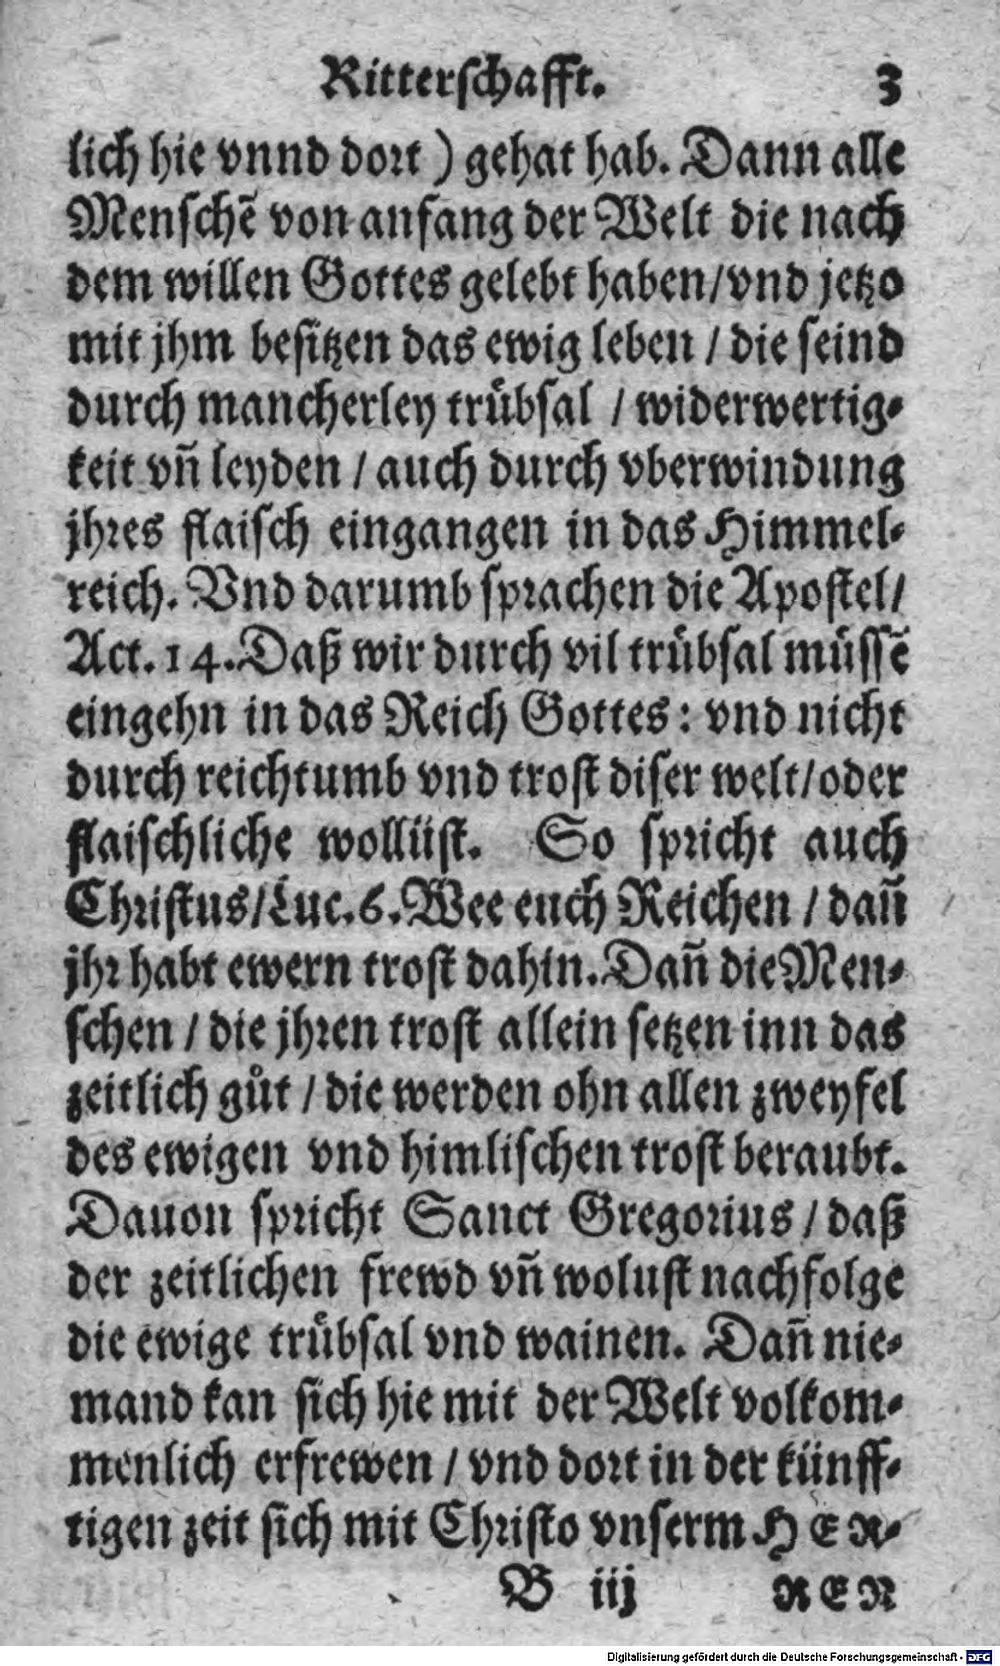 Ritterschafft. 3
lich hie vnnd dort ) gehat hab. Dann alle
Menschẽ von anfang der Welt die nach
dem willen Gottes gelebt haben/vnd jetzo
mit jhm besitzen das ewig leben / die seind
durch mancherley trůbsal / widerwertig-
keit vñ leyden / auch durch vberwindung
jhres flaisch eingangen in das Himmel-
reich. Vnd darumb sprachen die Apostel/
Act. 14. Daß wir durch vil trůbsal müssẽ
eingehn in das Reich Gottes: vnd nicht
durch reichtumb vnd trost diser welt/oder
flaischliche wollüst. So spricht auch
Christus/Luc. 6. Wee euch Reichen / dañ
jhr habt ewern trost dahin. Dañ die Men-
schen / die jhren trost allein setzen inn das
zeitlich gůt / die werden ohn allen zweyfel
des ewigen vnd himlischen trost beraubt.
Dauon spricht Sanct Gregorius / daß
der zeitlichen frewd vñ wolust nachfolge
die ewige trůbsal vnd wainen. Dañ nie-
mand kan sich hie mit der Welt volkom-
menlich erfrewen / vnd dort in der künff-
tigen zeit sich mit Christo vnserm HER-
B iij REN
Digitalisierung gefördert durch die Deutsche Forschungsgemeinschaft - DFG